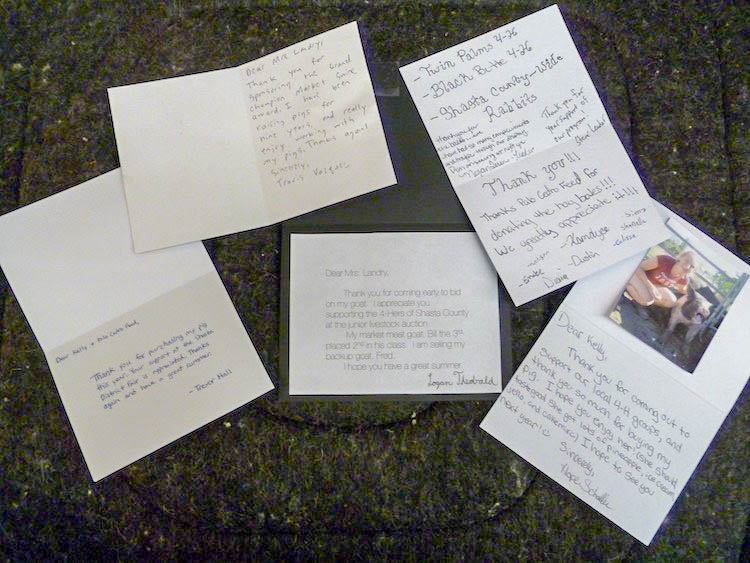 Dear Mrs. Landry,
Thank you for
sponsoring the Grand
champion Market Swine
award. I have been
raising pigs for
nine years and really
enjoy working with
my pigs. Thanks again!
Sincerely,
Travis
- Twin Palms 4-26
- Black Butte 4-26
- Shasta County-wide
Rabbits
Thank you for
the
had so many compliments
Thank you for
your support of
our program
Thank you!!!
Thanks Palo Cedro Feed for
donating the hay bales!!!
We greatly appreciate it!!!!
- Dustin
Dear Kelly + Palo Cedro Feed,
Thank you for purchasing my pig
this year. Your support at the Shasta
District Fair is appreciated. Thanks
again and have a great summer.
- Trevor Hall
Dear Mrs. Landry,
Thank you for coming early to bid
on my goat. I appreciate you
supporting the 4-Hers of Shasta County
at the junior livestock auction.
My market meat goat, Bill the 3rd
placed 2nd in his class. I am selling my
backup goat, Fred.
I hope you have a great summer.
Logan Theobald
Dear Kelly,
Thank you for coming out to
support our local 4-H groups, and
thank you so much for buying my
pig. I hope you enjoy her! (she should
taste good she got lots of pineapple, ice cream
jello, and catherine) I hope to see you
next year! :)
Sincerely,
Hope